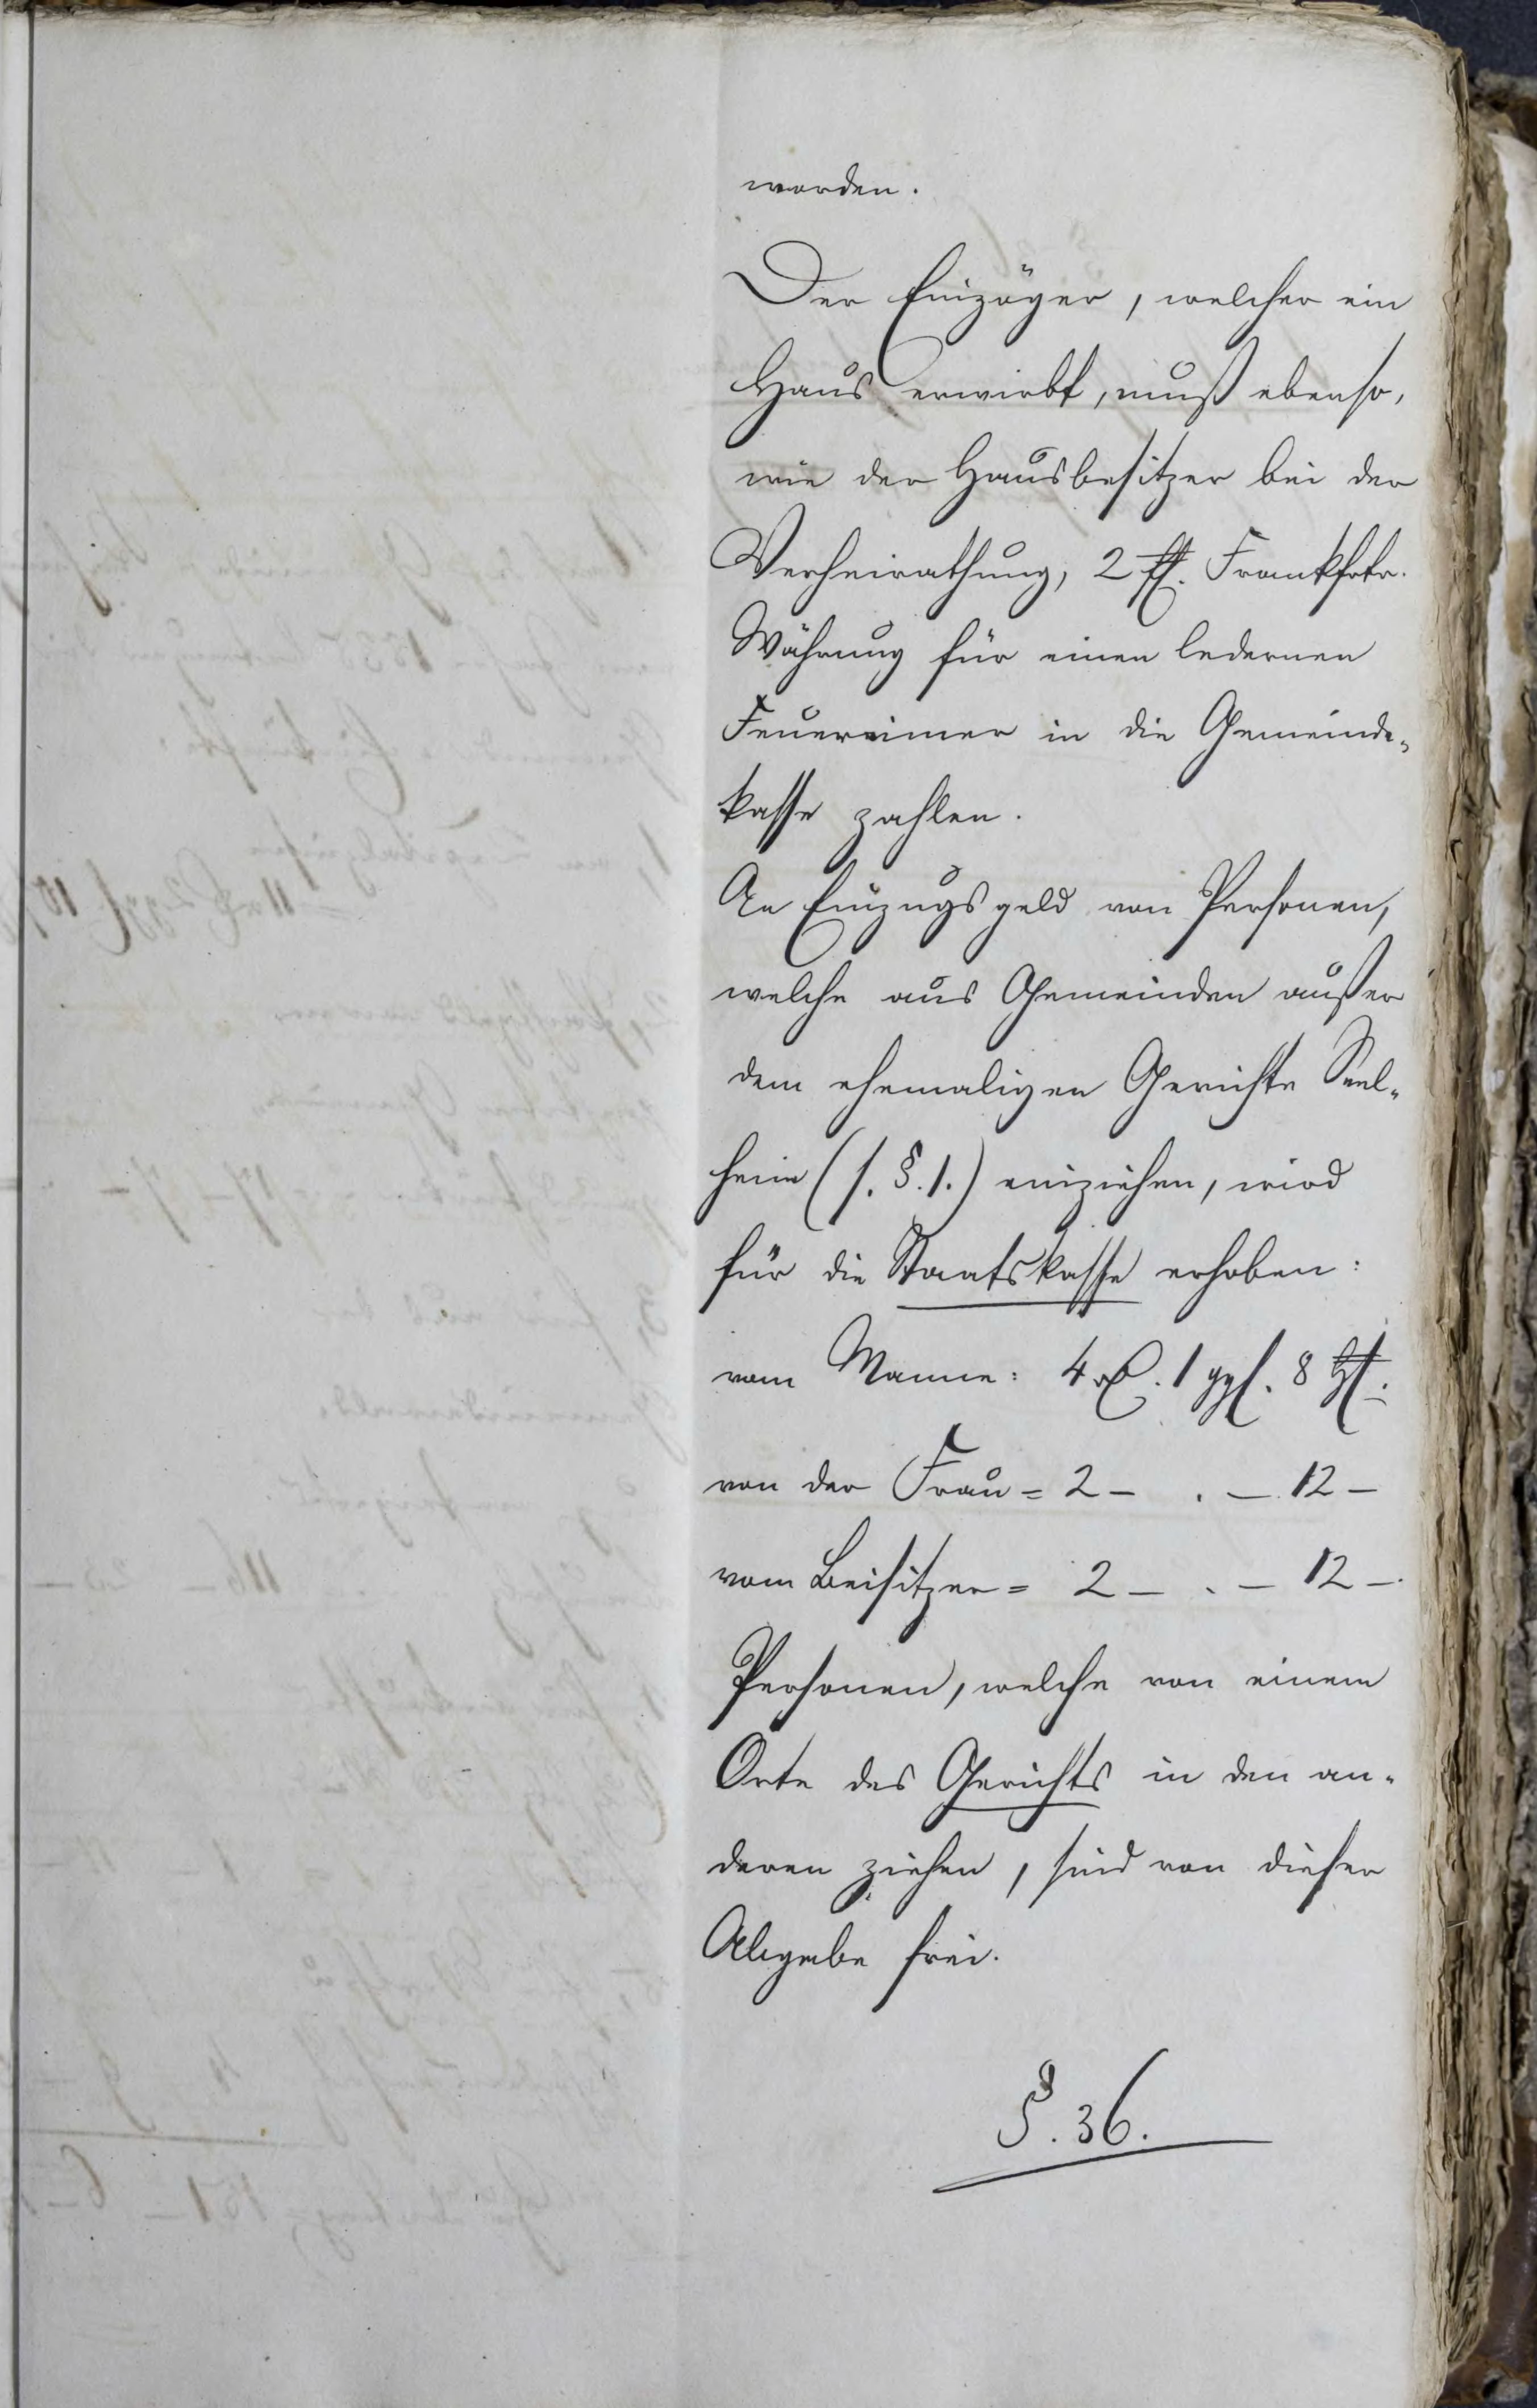 worden.
Der Einzöger, welcher ein
Haus erwirbt, muß ebenso,
wie der Hausbesitzer bei der
Verheirathung, 2 fl. Frankfrtr.
Währung für einen ledernen
Feuereimer in die Gemeinde-
kasse zahlen.
An Einzugsgeld von Personen,
welche aus Gemeinden außer
dem ehemaligen Gerichte Seel-
heim (s. §. 1.) einziehen, wird
für die Staatskasse erhoben:
vom Manne: 4 rℓ. 1 ggl. 8 hl.
von der Frau = 2 – . – 12 –
vom Beisitzer = 2 – . – 12 –.
Personen, welche von einem
Orte des Gerichts in den an-
deren ziehen, sind von dieser
Abgabe frei.
§. 36.